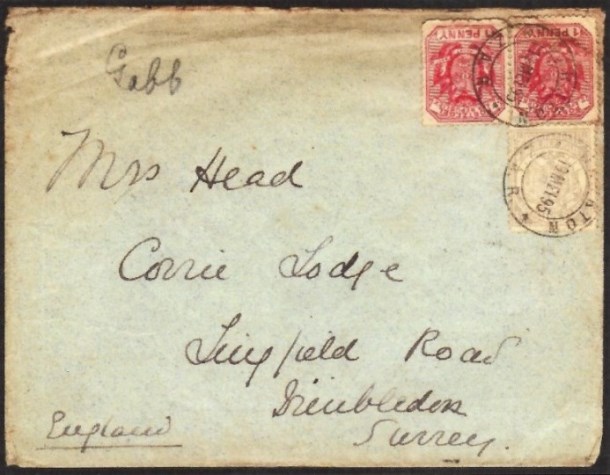 Gabb
1 PENNY
1 PENNY
Z.A.R.
Z.A.R.
19 MEI 95
Mrs Head
Corrie Lodge
Lingfield Road
Wimbledon
Surrey.
England